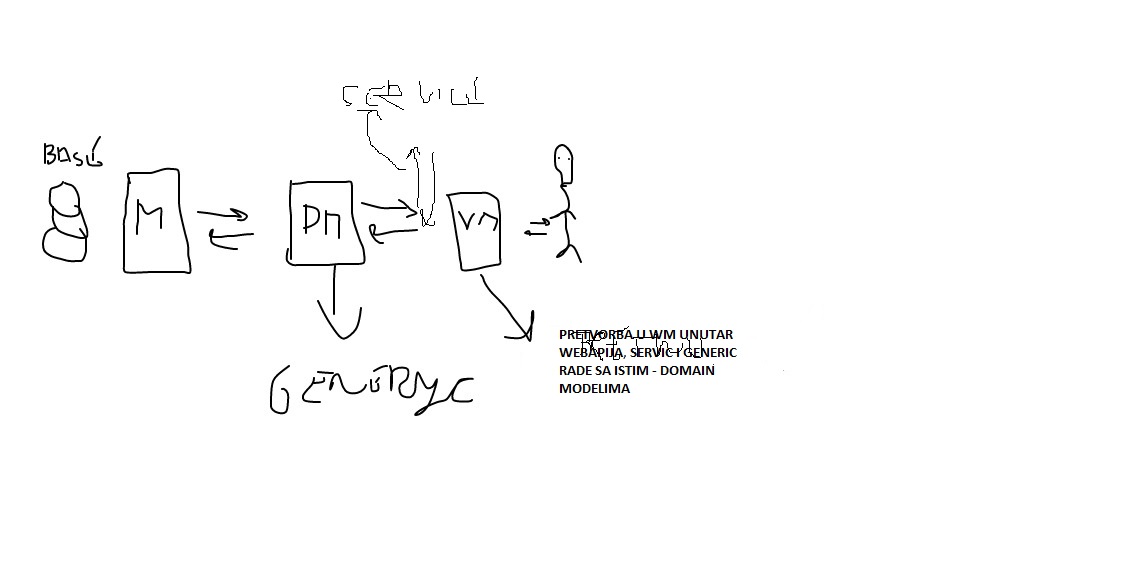 SERVICE
BASE
M
DM
VM
GENERIC
PRETVORBA U WM UNUTAR
WEBAPIJA, SERVIC I GENERIC
RADE SA ISTIM - DOMAIN
MODELIMA